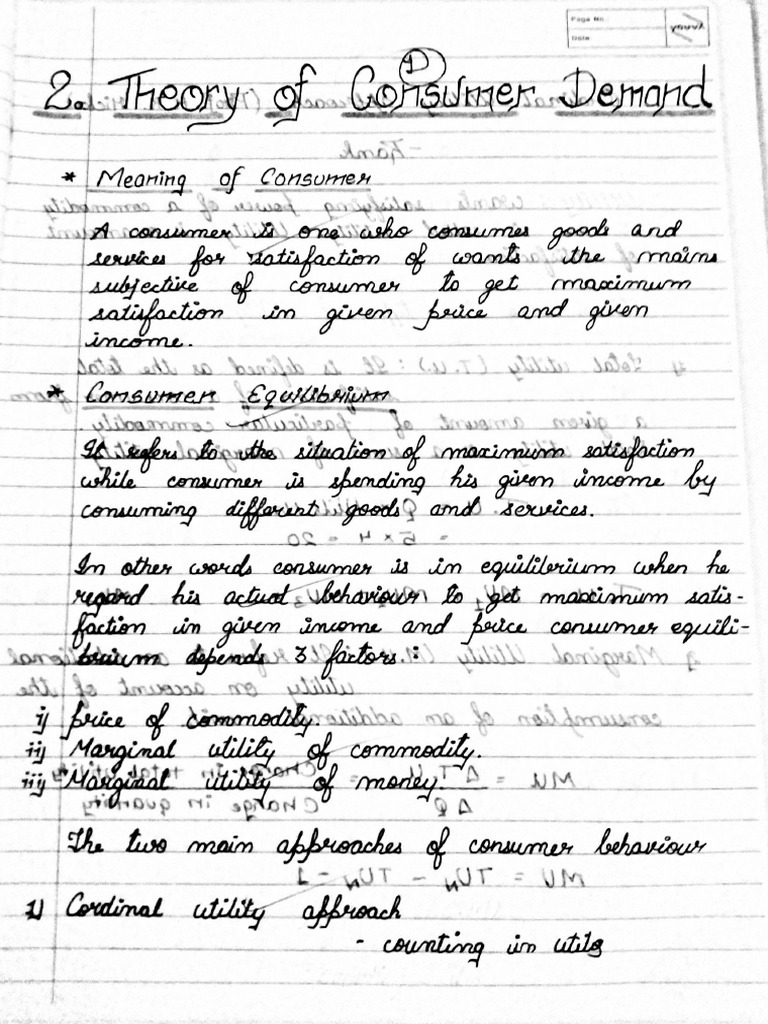 Page No.
Date
1
2. Theory of Consumer Demand
* Meaning of Consumer
A consumer is one who consumes goods and
services for satisfaction of wants the mains
subjective of consumer to get maximum
satisfaction in given price and given
income.
* Consumer Equilibrium
It refers to the situation of maximum satisfaction
while consumer is spending his given income by
consuming different goods and services.
In other words consumer is in equilibrium when he
regard his actual behaviour to get maximum satis-
faction in given income and price consumer equili-
brium depends 3 factors :
i) price of commodity.
ii) Marginal utility of commodity.
iii) Marginal utility of money.
The two main approaches of consumer behaviour
1) Cordinal utility approach
- counting in utils